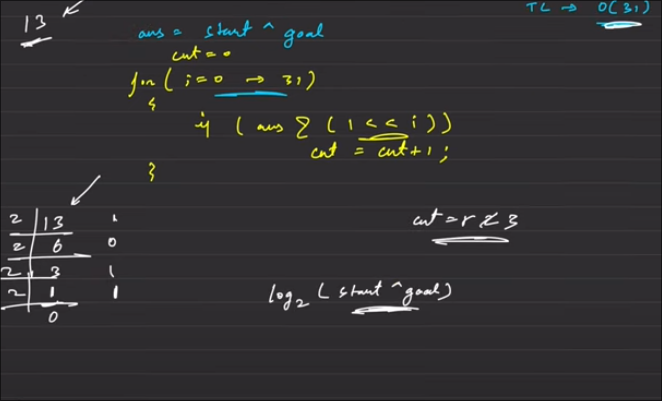 13
TC → O(31)
ans = start ^ goal
cnt = 0
for ( i=0 → 31)
{
if ( ans & ( 1 << i))
cnt = cnt+1;
}
2 13 1
2 6 0
2 3 1
2 1 1
0
log2 ( start ^ goal)